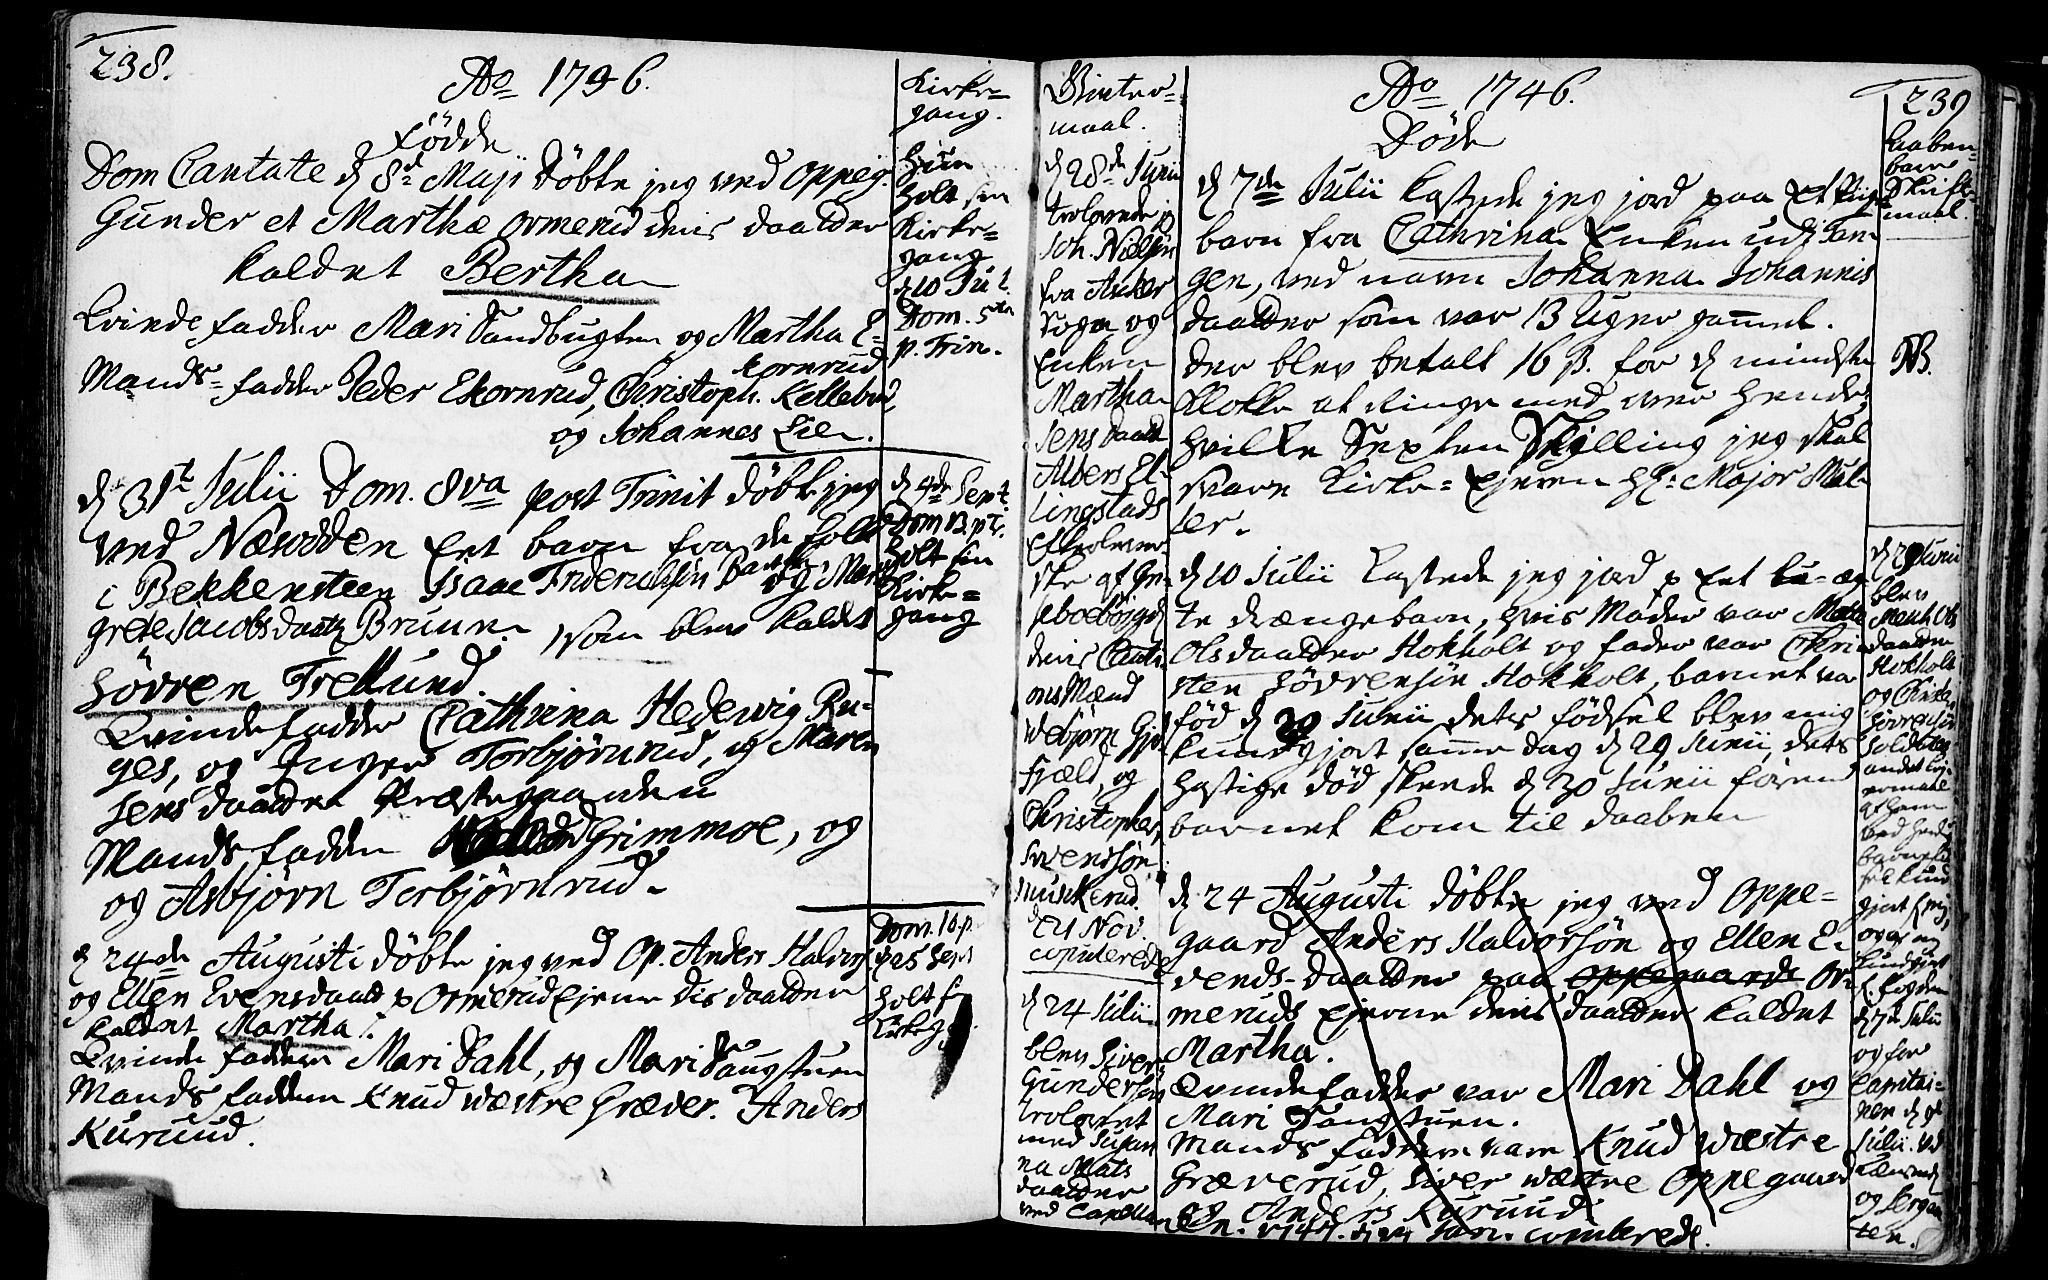 238.
Ao 1746.
Fødde
Dom Cantate d 8de Maji døbte jeg ved Oppeg.
Gunder et Marthæ Ormerud deris daatter
kaldet Bertha
Kvindefadder Mari Sandbugten og Martha E-
kornrud
Mands-fadder Peder Ekornrud, Christoph. Kollebud,
og Johannes Lien.
d 31t Julii Dom. 8va post Trinit døbte jeg
ved Næsodden Eet barn fra de folk
i Bekkensteen Isaac Friderichsøn og Mar-
grete Jacobsdaatr Bruun som blev kaldet
Sövren Trellund.
Kvindefadder Cathrina Hedewig Ru-
ges, og Inger Torbjørnrud, og Maren
Jensdaatter Præstegaarden
Mandsfadder Grimmoe, og
og Asbjørn Torbjørnrud.
d 24de Augusti døbte jeg ved Op. Anders Halvors
og Ellen Evensdaatt p Ormerud Ejerne dis daatter
kaldet Martha.
Kvinde faddere Mari Dahl, og Mari Saugstuen
Mands faddere Knud wæstre Græver. Anders
Kuruud.
Kirke-
gang.
Hun
holt sin
Kirke-
gang
d 10 Jul.
Dom. 5ta
p. Trin.
d 4de Sept.
Dom 13. p Tr.
holt sin
Kirke-
gang
Dom. 16. p.
d 25 Sept
holt
Kirkeg
Winter-
maal.
d 28de Junii
trolovede jeg
Joh. Nielsøn
fra Anker
Sogn og
Enken
Martha
Jens daatt
Albers El-
lingstads
efterlever-
ske af Ge-
sboebøjgd
deris Cauti-
ons Mænd
Webjørn Gje-
fjæld, og
Christopher
Svendsøn
Muskerud.
d 21 Nov.
copulerede
d 24 Julii
blev Siver
Gundersøn
trolovet
med Susan
na Mats
daatter
ved Capellan
Ao 1746.
239
Døde
d 7de Julii kastede jeg jord paa Et Pige
barn fra Cathrina Enken udi Tan-
gen, ved navn Johanna Johannis
daatter som var 13 Uger gammel.
Der blev betalt 16 ß. for d mindste
Klokke at ringe med over hende
hvilke Sexten Skilling jeg skal
svare Kirke-Ejeren Hr. Major Mül-
ler.
d 10 Julii kastede jeg jord p Eet u-æg-
te drængebarn, hvis Moder var Mette
Olsdaatter Hokholt og fader var Chri-
sten Sövrensøn Hokholt, barnet var
fød d 29 Junii dets fødsel blev mig
kundgjort samme dag d 29 Junii, dets
hastige død skeede d 30 Junii førend
barnet kom til daaben
d 24 Augusti døbte jeg ved Oppe-
gaard Anders Halvorsøn og Ellen E-
vends-daatter paa Oppegaards Or-
meruds Ejerne deris daatter kaldet
Martha.
Qvindefadder var Mari Dahl og
Mari Saugstuen.
Mands faddere vare Knud wæstre
Græverud, Siver wæstre Oppegaard
og Anders Kuruud
1747. Jan. copulerede.
Aaben-
bare
Skrifte-
maal.
NB.
d 29 Junii
blev
Mette Ols
daatter
Hokholt
og Christen
Sövrensøn
Soldat
andet lej-
ermaal
af ham
ved hende
barnets
gjort f mig,
og
kundgjort
f. fogden
d 7de Julii
og for
Capitai-
nen d 9de
Julii. ved
og Sergan
ten.